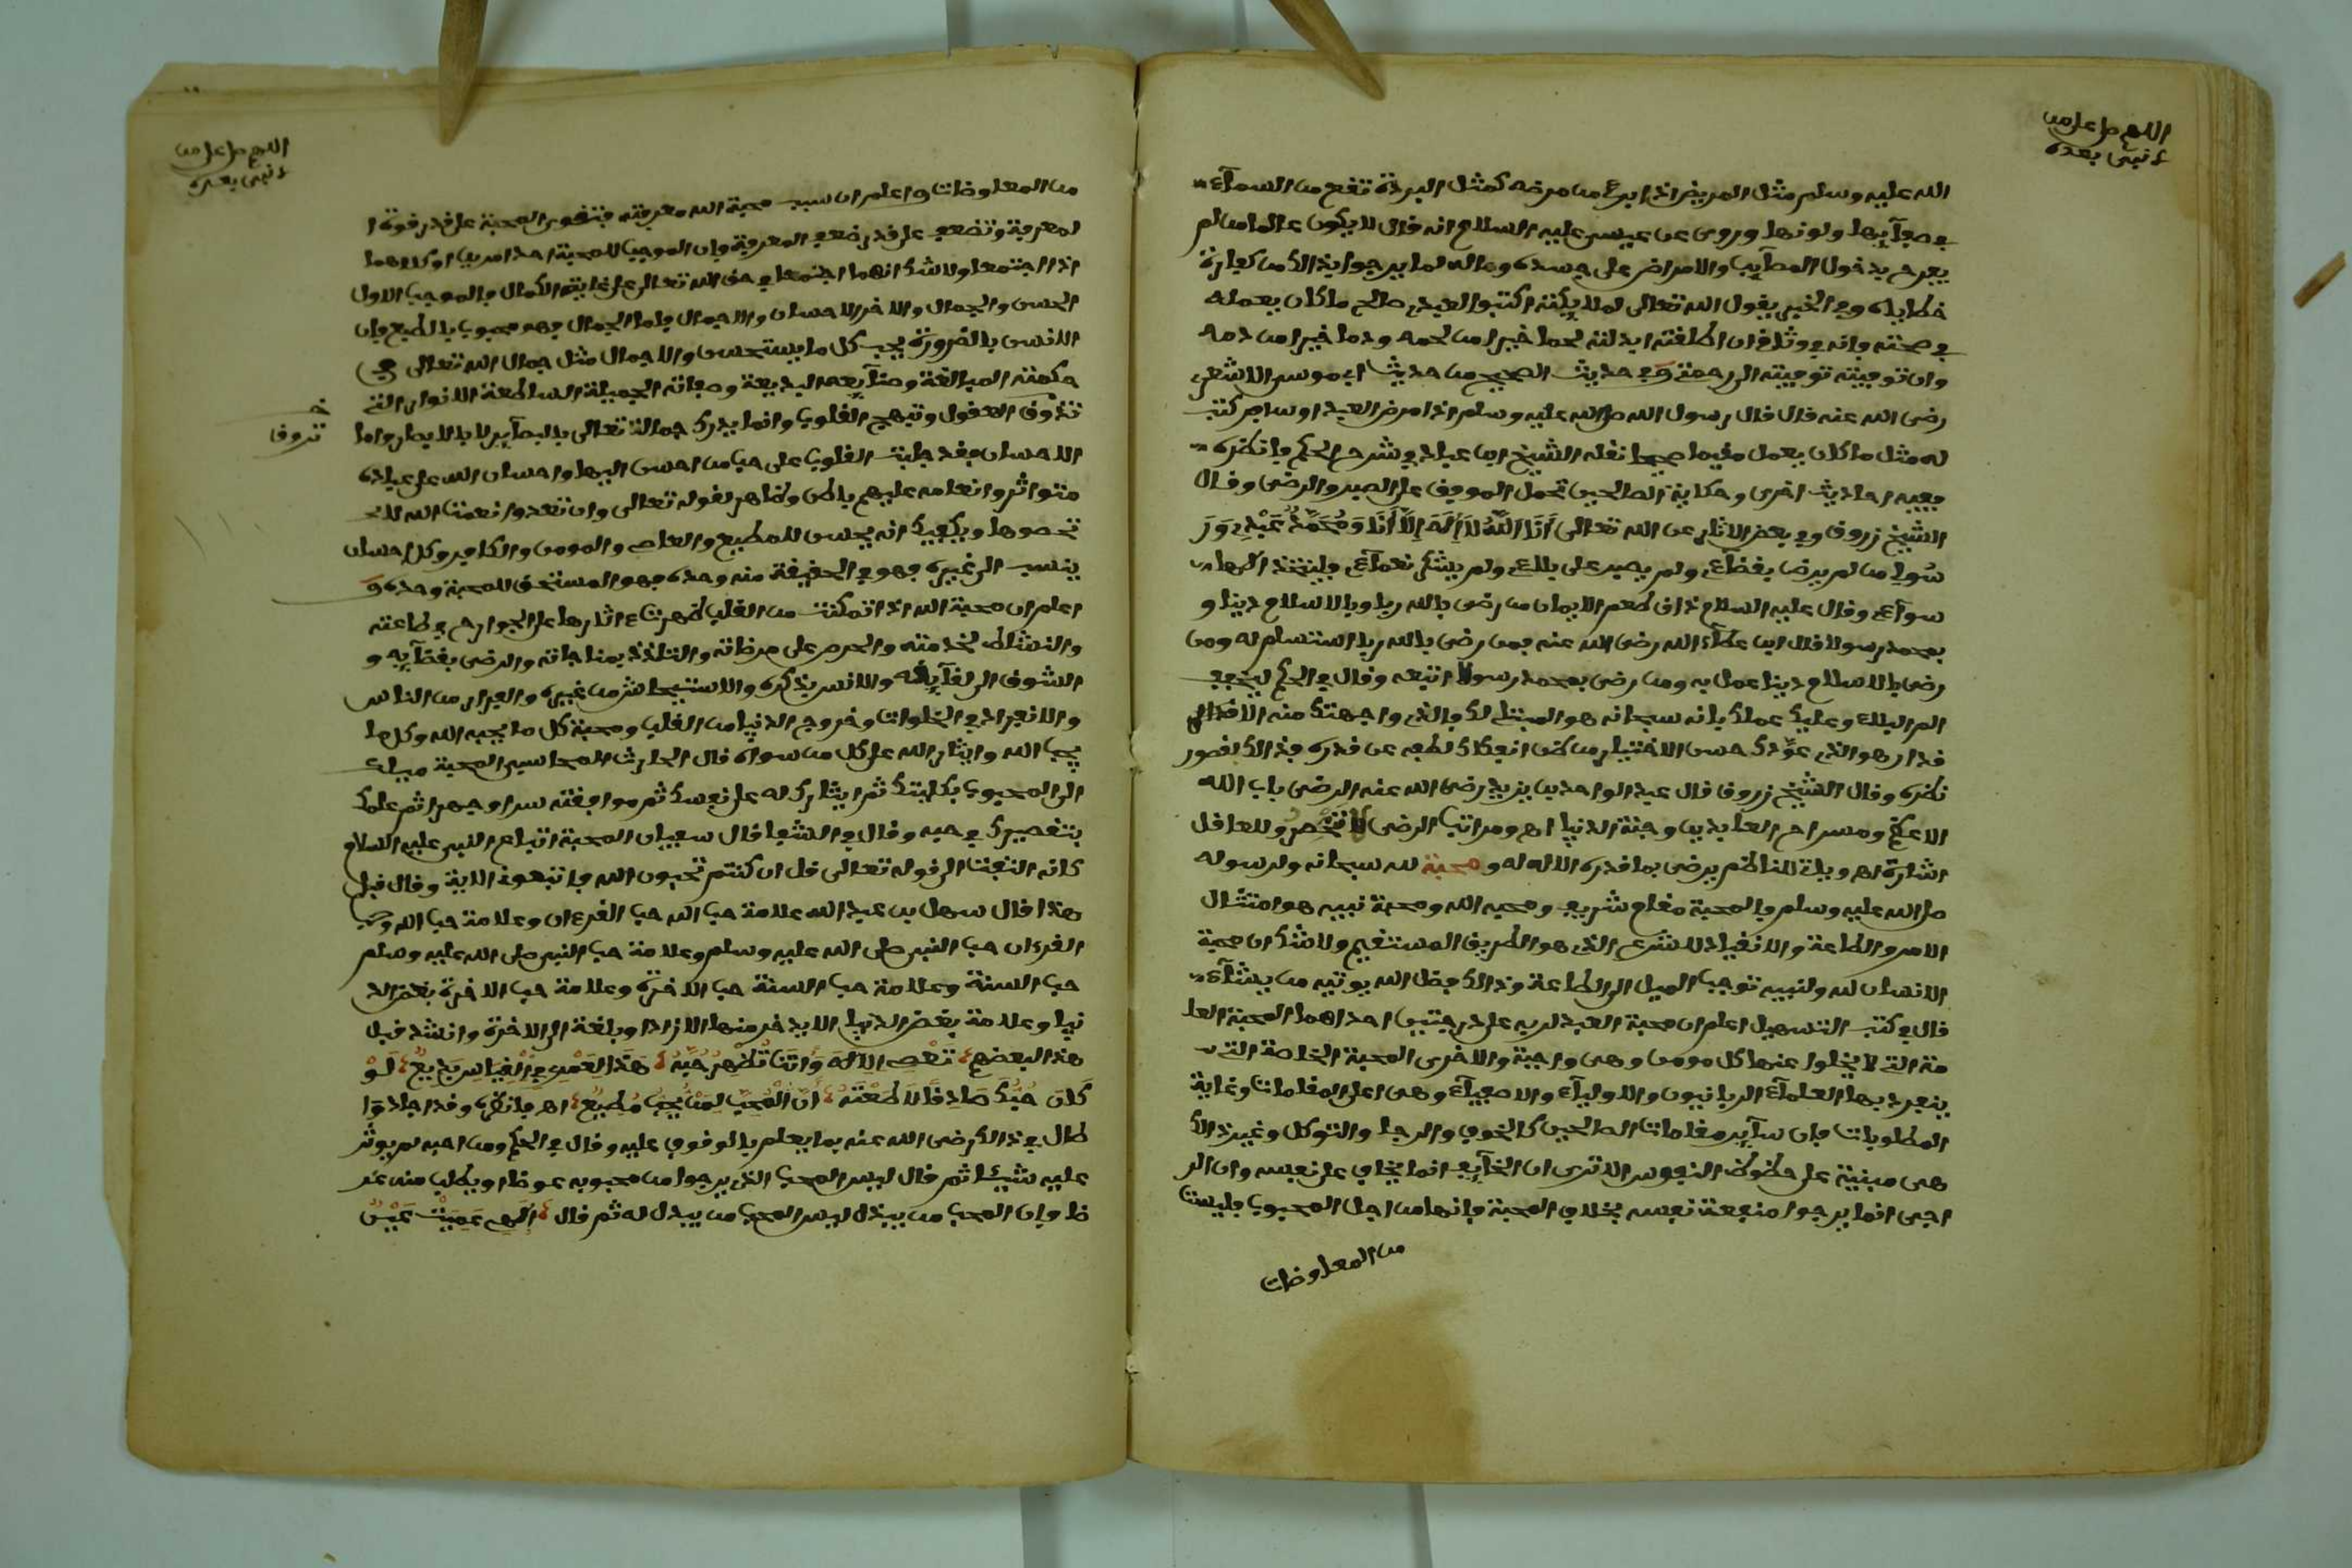 اللهم صل على من
لا نبي بعده
الله عليه وسلم مثل المريض اذا برئ من مرضه كمثل البردة تقع من السماء
في صفائها ولونها وروي عن عيسى عليه السلام انه قال لا يكون عالما من لم
يفرح بدخول المصآيب والامراض على جسده وماله لما يرجوا في ذالك من كفارة
خطاياه وفي الخبر يقول الله تعالى لملايكته اكتبوا لعبدي صالح ما كان يعمله
في صحته وانه في وثاقي ان اطلقته ابدلته لحما خيرا من لحمه ودما خيرا من دمه
وان توفيته توفيته الى رحمتي وفي حديث الصحيح من حديث ابي موسى الاشعري
رضى الله عنه قال قال رسول الله صلى الله عليه وسلم اذا مرض العبد او سافر كتب
له مثل ما كان يعمل مقيما صحيحا نقله الشيخ ابن عباد في شرح الحكم فانظره
ففيه احاديث اخرى وحكاية الصالحين تحمل الموفق على الصبر والرضى وقال
الشيخ زروق وفي بعض الاثار عن الله تعالى أَنَا اللَّهُ لَا إِلَهَ إِلَّا أَنَا وَمُحَمَّدٌ عَبْدِي وَرَ
سُولِي من لم يرض بقضآءي ولم يصبر على بلاءي ولم يشكر نعمآءي فليتخذ الها
سوآءي وقال عليه السلام ذاق طعم الايمان من رضى بالله ربا وبالاسلام دينا و
بمحمد رسولا قال ابن عطآء الله رضى الله عنه فمن رضى بالله ربا استسلم له ومن
رضى بالاسلام دينا عمل به ومن رضى بمحمد رسولا اتبعه وقال في الحكم ليخفف
الم البلاء عليك علمك بانه سبحانه هو المبتلي لك فالذي واجهتك منه الاقدار
هو الذي عوّدك حسن الاختيار من ظن انفكاك لطفه عن قدره فذالك لقصور
نظره وقال الشيخ زروق قال عبد الواحد بن يزيد رضى الله عنه الرضى باب الله
الاعظم ومسراح العابدين وجنة الدنيا اه ومراتب الرضى لا تنحصر وللعاقل
اشارة اه وبلة للناظم يرضى بما قدره الاله له ومحبة لله سبحانه ولرسوله
صلى الله عليه وسلم فالمحبة مقام شريف ومحبة الله ومحبة نبيه هو امتثال
الامر والطاعة والانقياد للشرع الذي هو الطريق المستقيم ولا شك ان محبة
الانسان لله ولنبيه توجب الميل الى الطاعة وذالك فضل الله يوتيه من يشآء
قال في كتب التسهيل اعلم ان محبة العبد لربه على درجتين احداهما المحبة العا
مة التي لا يخلوا عنها كل مومن وهى واجبة والاخرى المحبة الخاصة التي
ينفرد بها العلمآء الربانيون والاوليآء والاصفيآء وهى اعلى المقامات وغاية
المطلوبات فان سآير مقامات الصالحين كالخوف والرجا والتوكل وغير ذالك
هى مبنية على حظوظ النفوس الا ترى ان الخآيف انما يخاف على نفسه وان الر
اجى انما يرجوا منفعة نفسه بخلاف المحبة فانها من اجل المحبوب فليست
من المعاوضات
اللهم صل على من
لا نبي بعده
من المعاوضات واعلم ان سبب محبة الله معرفته فتقوى المحبة على قدر قوة ا
لمعرفة وتضعف على قدر ضعف المعرفة فان الموجب للمحبة احد امرين او كلاهما
اذا اجتمعا ولا شك انهما اجتمعا في حق الله تعالى على غاية الكمال فالموجب الاول
الحسن والجمال والاخر الاحسان والاجمال فاما الجمال فهو محبوب بالطبع فان
الانسان بالضرورة يحب كل ما يستحسن والاجمال مثل جمال الله تعالى في
حكمته البالغة وصنآيعه البديعة وصفاته الجميلة الساطعة الانوار التي
تذوق العقول وتبهج القلوب وانما يدرك جمال الله تعالى بالبصآير لا بالابصار واما
خ
تروق
الاحسان فقد جبلت القلوب على حب من احسن اليها واحسان الله على عباده
متواتر وانعامه عليهم باطن وظاهر لقوله تعالى وان تعدوا نعمت الله لا
تحصوها ويكفيك انه يحسن للمطيع والعاصي والمومن والكافر وكل احسان
ينسب الى غيره فهو في الحقيقة منه وحده فهو المستحق للمحبة وحده و
اعلم ان محبة الله اذا تمكنت من القلب ظهرت اثارها على الجوارح في طاعته
والنشاط لخدمته والحرص على مرضاته والتلذذ بمناجاته والرضى بقضآيه و
الشوق الى لقآيه والانس بذكره والاستيحاش من غيره والفرار من الناس
والانفراد في الخلوات وخروج الدنيا من القلب ومحبة كل ما يحبه الله وكل ما
يحب الله وايثار الله على كل من سواه قال الحارث المحاسبي المحبة ميلك
الى المحبوب بكليتك ثم ايثارك له على نفسك ثم موافقته سرا وجهرا ثم علمك
بتقصيرك في حبه وقال في الشفا قال سفيان المحبة اتباع النبي عليه السلام
كانه التفت الى قوله تعالى قل ان كنتم تحبون الله فاتبعوني الاية وقال قبل
هذا قال سهل بن عبد الله علامة حب الله حب القرءان وعلامة حب الله وحب
القرءان حب النبي صلى الله عليه وسلم وعلامة حب النبي صلى الله عليه وسلم
حب السنة وعلامة حب السنة حب الاخرة وعلامة حب الاخرة بغض الد
نيا وعلامة بغض الدنيا الا يدخر منها الا زادا وبلغة الى الاخرة وانشد قبل
هذا لبعضهم تَعْصِي الْاِلَهَ وَأَنْتَ تُظْهِرُ حُبَّهُ هَذَا لَعَمْرِي فِي الْقِيَاسِ بَدِيعُ لَوْ
كَانَ حُبُّكَ صَادِقًا لَأَطَعْتَهُ إِنَّ الْمُحِبَّ لِمَنْ يُحِبُّ مُطِيعُ اه فانظره وقد اجاد وا
طال في ذالك رضى الله عنه بما يعلم بالوقوف عليه وقال في الحكم ومن احبه لم يوثر
عليه شيئا ثم قال ليس المحب الذي يرجوا من محبوبه عوضا او يطلب منه غر
ضا فان المحب من يبذل ليس المحب من يبذل له ثم قال إلهي عَمِيَتْ عَيْنٌ